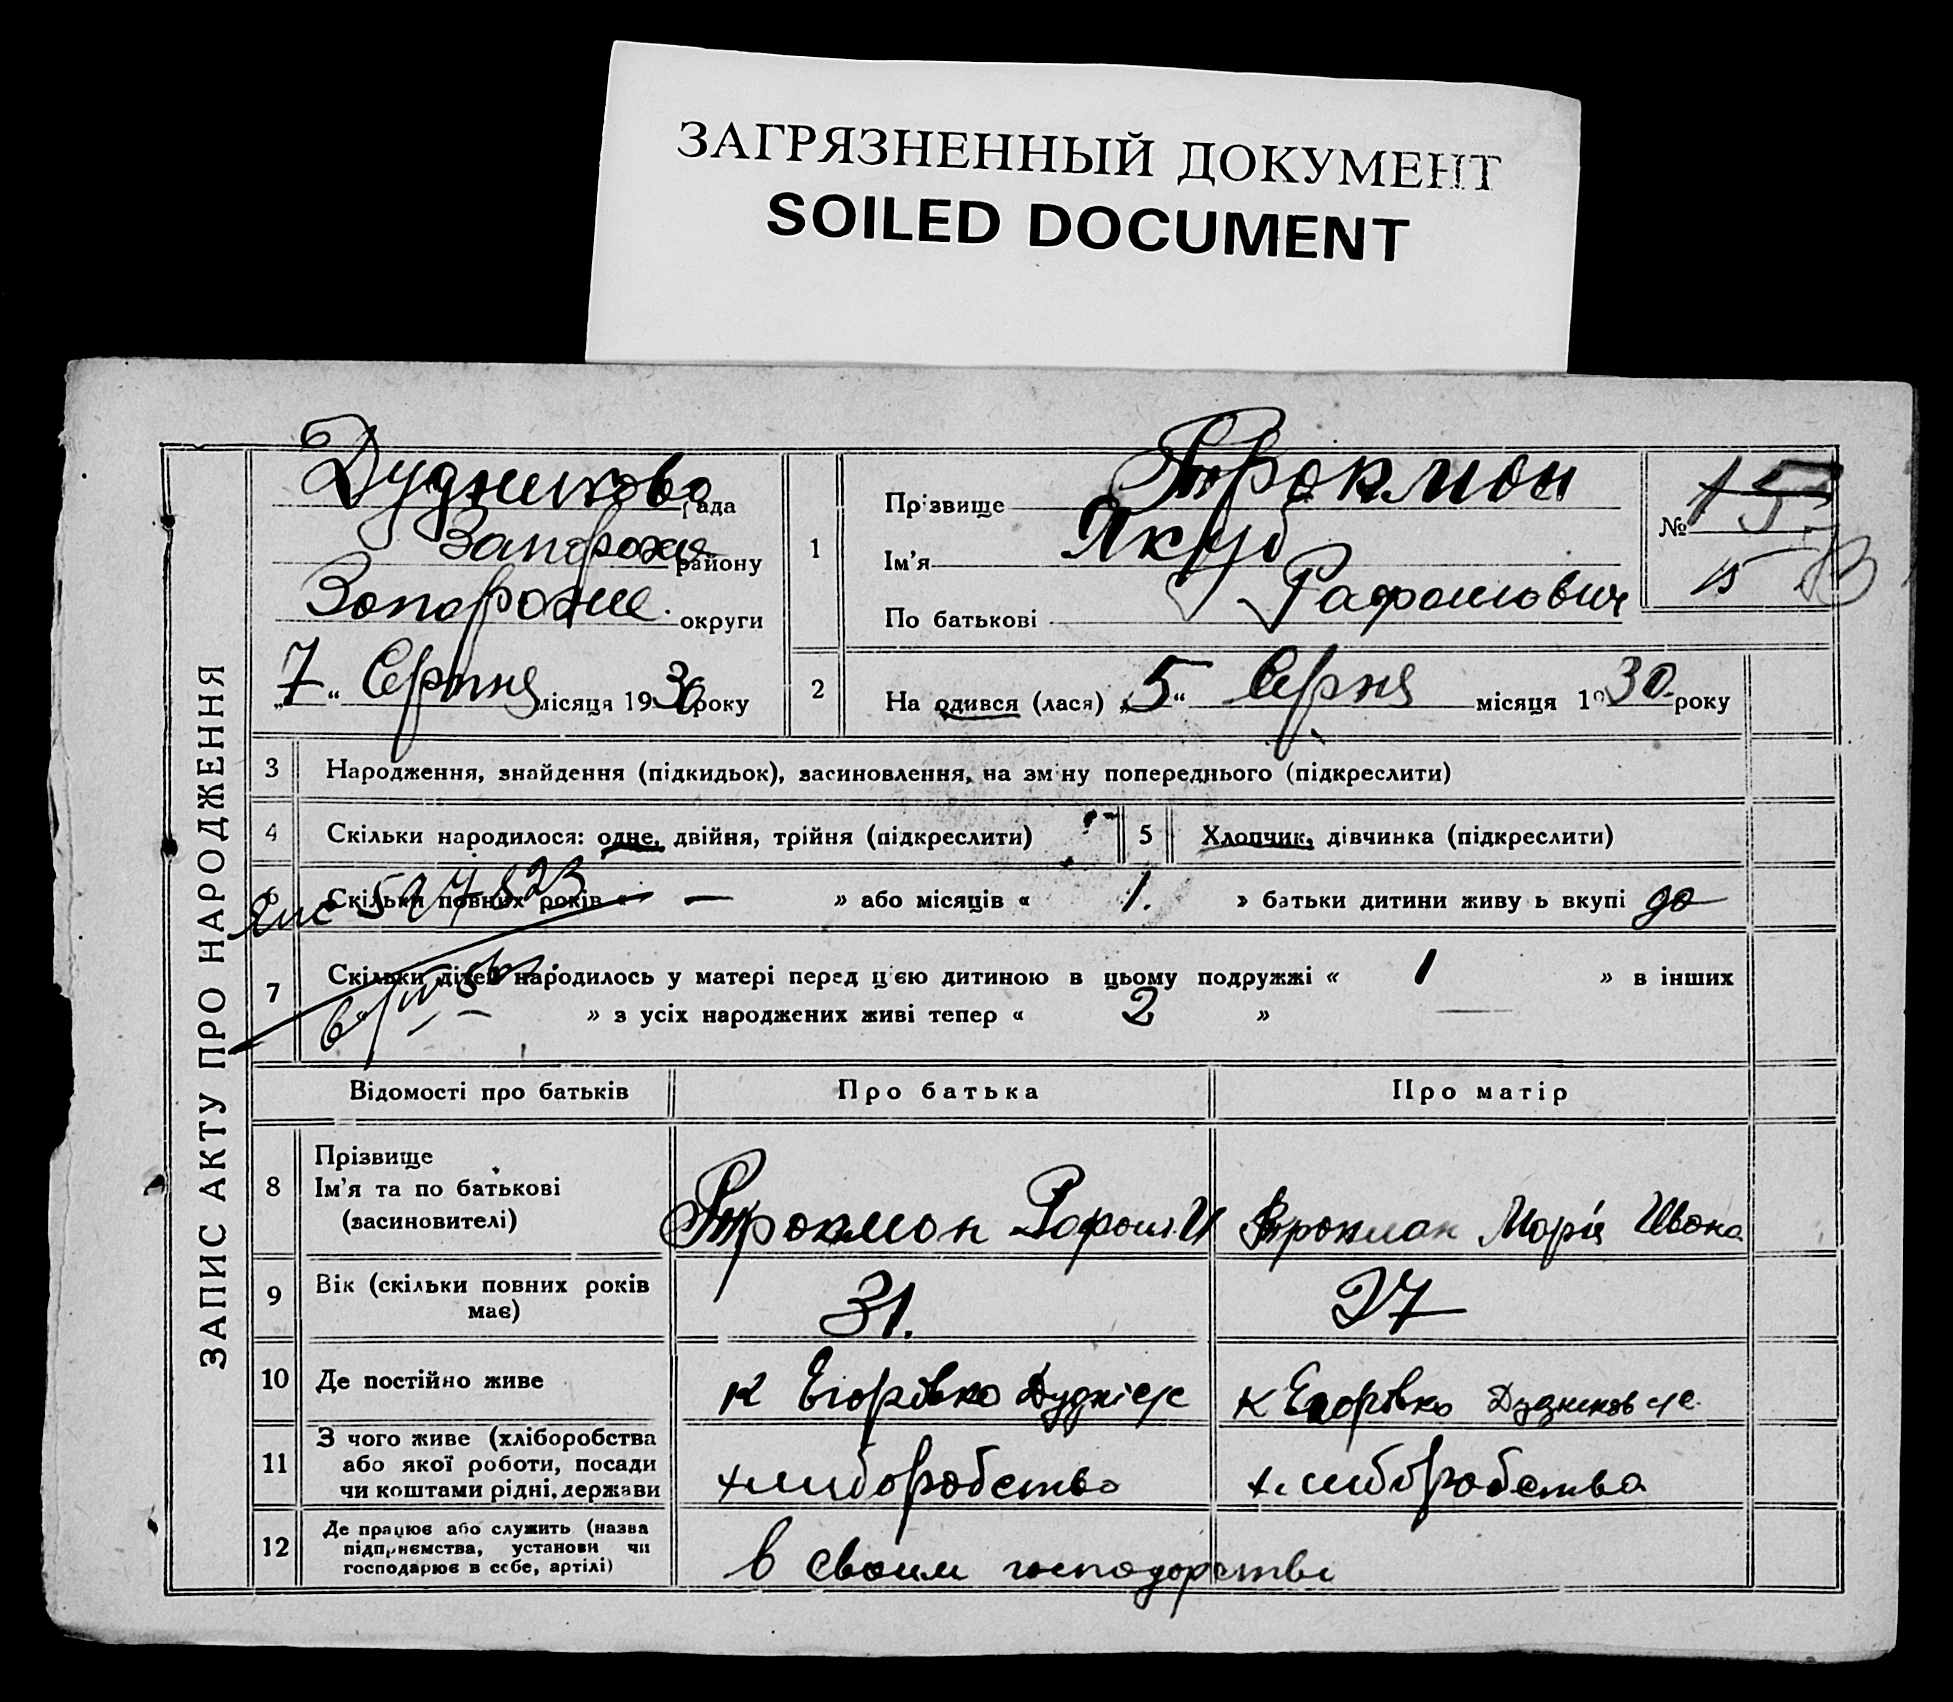 ЗАГРЯЗНЕННЫЙ ДОКУМЕНТ
SOILED DOCUMENT
ЗАПИС АКТУ ПРО НАРОДЖЕННЯ
Дудниково рада
Запорожя району
Запороже округи
„7“ Серпня місяця 1930 року
1
Прізвище Трокмон
Ім'я Якуб
По батькові Рафоилович
№ 15
15
2 На одився (лася) „5“ Серня місяця 1930 року
3 Народження, знайдення (підкидьок), засиновлення, на зміну попереднього (підкреслити)
4 Скільки народилося: одне, двійня, трійня (підкреслити)
5 Хлопчик, дівчинка (підкреслити)
6 Скільки повних років « — » або місяців « 1. » батьки дитини живу ь вкупі до
527823
7 Скільки дітей народилось у матері перед цією дитиною в цьому подружжі « 1 » в інших
» з усіх народжених живі тепер « 2 » —
Відомості про батьків Про батька Про матір
8 Прізвище
Ім'я та по батькові
(засиновителі)
Трокмон Рофоил И
Трокмон Марія Ивона
9 Вік (скільки повних років
має)
31.
27
10 Де постійно живе
к Егорівко
к Егорівко
11 З чого живе (хліборобства
або якої роботи, посади
чи коштами рідні, держави
хлиборобство
хлиборобства
12 Де працює або служить (назва
підприємства, установи чи
господарює в себе, артілі)
в своим господорстві